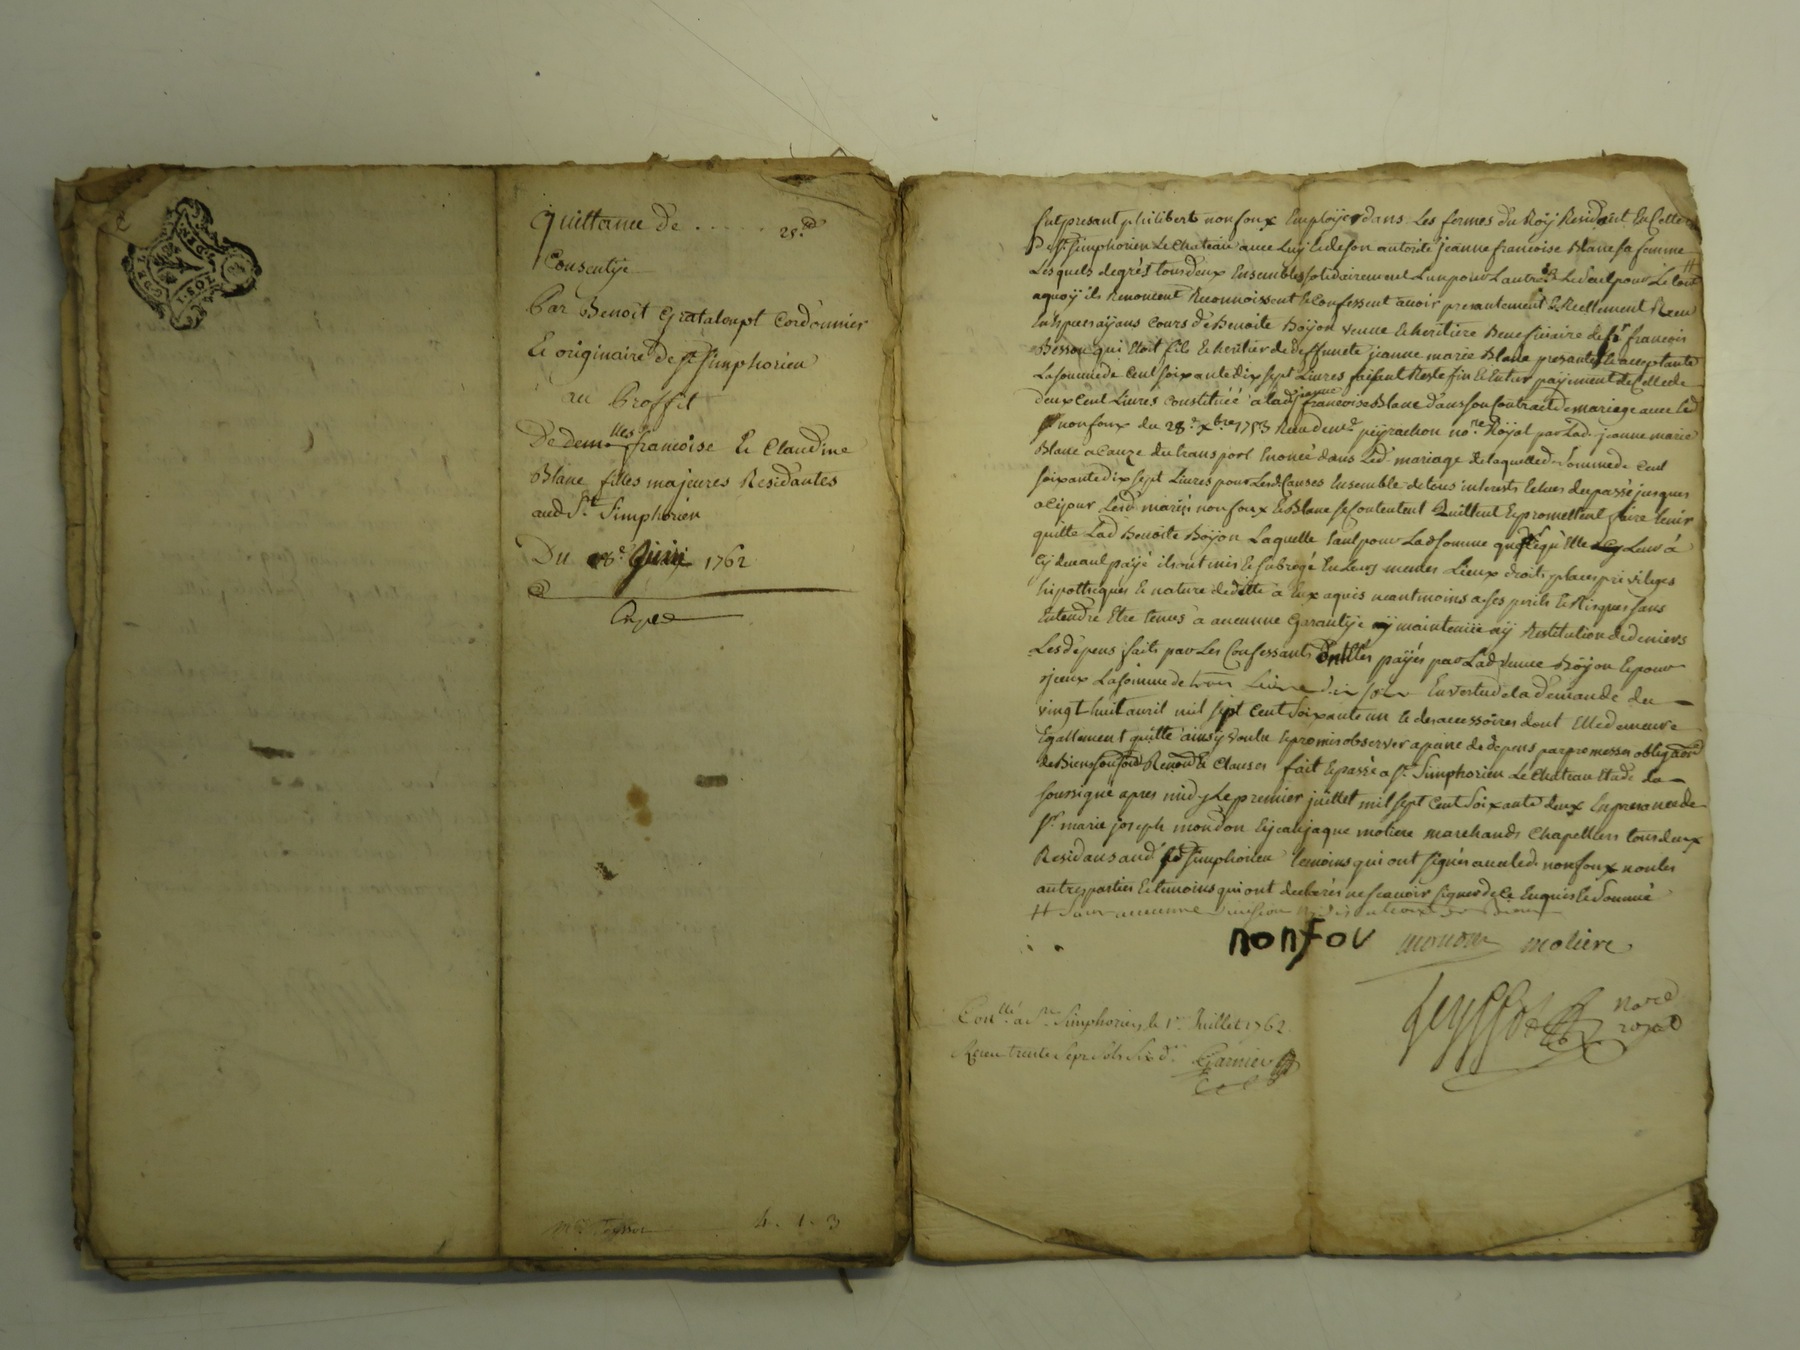 quittance de ..... 25.ld
Consentÿe
Par Benoit Grataloupt Cordonnier
Et originaire de St. Simphorien
au Proffit
De demlles francoise Et Claudine
Blanc filles majeures Residantes
aud St. Simphorien
Du 18e Juin 1762
Exped
4. 1. 3
fut presant philibert nonfoux Employer dans Les formes du Roÿ Residant En Cette
De St. Simphorien Le Chateau avec Luy Et de son autorité jeanne francoise Blanc sa femme
Lesquels de grés tous deux Ensembles solidairement L'un pour L'autre & Le seul pour Le tout #
aquoÿ ils Renoncent Reconnoissent & Confessent avoir presantement & Reellement Receu
En Especes aÿans Cours de Benoite Boÿon veuve & heritiere Beneficiaire de Sr francois
Besson qui Etoit fils & heritier de deffuncte jeanne marie Blanc presante & acceptante
La somme de Cent soixante dix sept Livres faisent Reste fin & Entier paÿiment de Celle de
deux Cent Livres Constituéé a lad jeanne francoise Blanc dans son Contrait de mariage avec Led
nonfoux du 28e xbre 1753 Receu de me peÿrachon nore Roÿal par Lad. jeanne marie
Blanc a Cauze du transport Enoncé dans Led. mariage de laquelled. somme de Cent
soixante dix sept Livres pour Lesd. Causes Ensemble de tous interests Echus du passé jusques
a Cejour Lesd mariés nonfoux & Blanc se Contentent Quittent & promettent faire tenir
quitte Lad Benoite Boÿon Laquelle tant pour Lad somme que qu'Elle Leur à
Cÿ devant paÿé ils ont mis & subrogé En Leurs memes Lieux droits places privileges
hipottheques & nature de dette a Eux aquis neantmoins a ses perils & Risques sans
Entendre Etre tenus a aucunne Garantÿe nÿ maintenüe nÿ Restitution de deniers
Les dépens faits par Les Confessants ont Etés paÿés par Lad veuve Boÿon & pour
iceux La somme de trois Livre dix sols En vertu de la demande du
vingt huit avril mil sept Cent soixante un & des accessoires dont Elle demeure
Egallement quitte ainsÿ voulu & promis observer a paine de depens par promesses obligaons
de Biens soumons Renons & Clauses fait & passé a St. Simphorien Le Chateau Etude du
soussigné apres midy Le premier juillet mil sept Cent soixante deux En presance de
Sr. marie joseph mondon Et jean jaque moliere marchands Chapelliers tous deux
Residans aud St Simphorien temoins qui ont signés avec led. nonfoux non les
autres parties Et temoins qui ont declarés ne scavoir signer de ce Enquis & sommé
# sans aucunne division
nonfou mondon moliere
nore
royal
Conllé a St Simphorien le 1er Juillet 1762
Receu trente Sept Sols Six d. Garnier